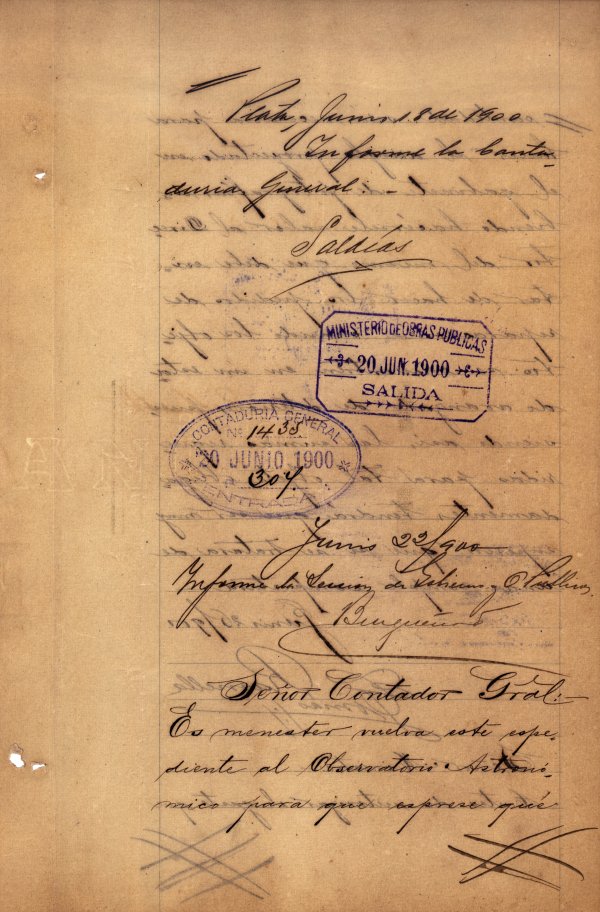 Plata, Junio 18 de 1900
Informe la Conta-
duria General. -
Saldías
MINISTERIO DE OBRAS PUBLICAS
20.JUN.1900
SALIDA
CONTADURIA GENERAL
Nº 1435
20 JUNIO 1900
307
ENTRADA
Junio 22/900
Informe la Seccion de Gobierno y O Publicas
Señor Contador Gral:
Es menester vuelva este espe-
diente al Observatorio Astronó-
mico para que esprese qué